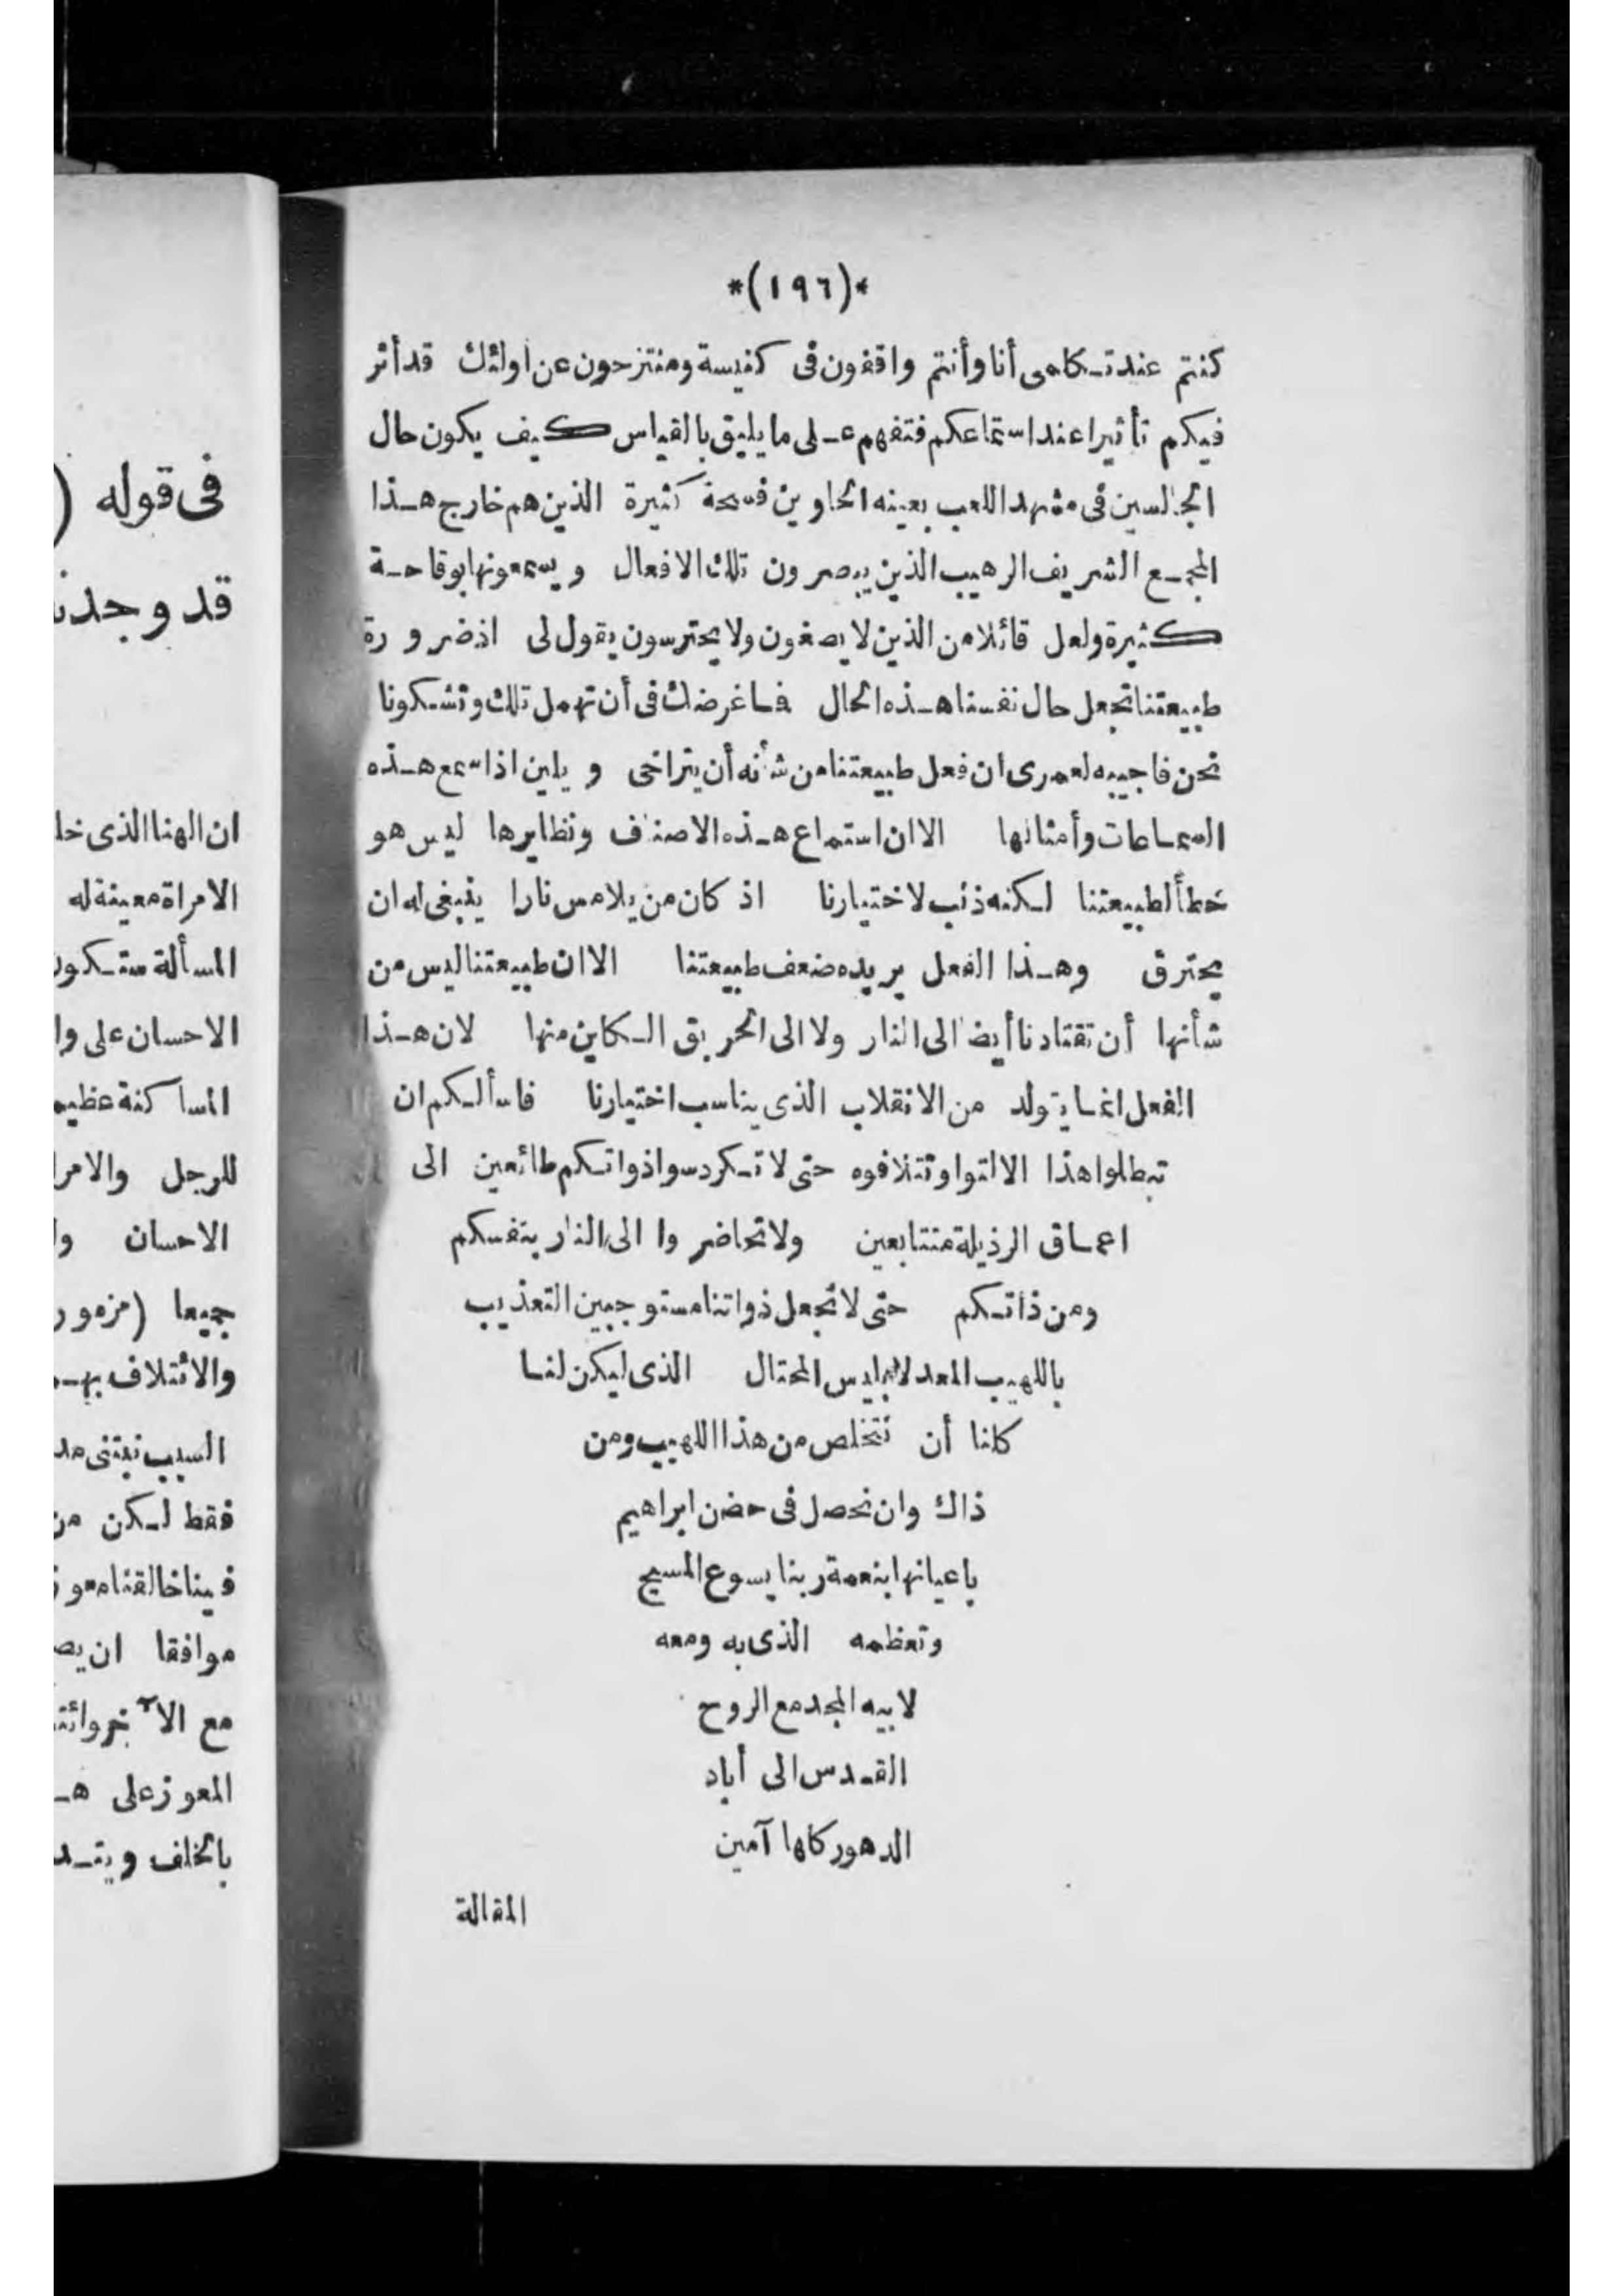 *(١٩٦)*
كنتم عند تـكلمى أنا وأنتم واقفون فى كنيسة ومنتزحون عن اولئك قد أثر
فيكم تأثيرا عند استماعكم فتفهم عـلى ما يليق بالقياس كيف يكون حال
الجالسين فى مشهد اللعب بعينه الحاوين فسحة كثيرة الذين هم خارج هـذا
المجمـع الشريف الرهيب الذين يبصرون تلك الافعال ويسمعونها بوقاحـة
كثيرة ولعل قائلا من الذين لا يصغون ولا يحترسون يقول لى اذ ضرورة
طبيعتنا تجعل حال نفسنا هـذه الحال فـا غرضك فى أن تهمل تلك وتشـكونا
نحن فاجيبه لعمرى ان فعل طبيعتنا من شأنه أن يتراخى ويلين اذا سمع هـذه
السمـاعات وأمثالها الا ان استماع هـذه الاصناف ونظايرها ليس هو
خطأ لطبيعتنا لـكنه ذنب لاختيارنا اذ كان من يلامس نارا ينبغى له ان
يحترق وهـذا الفعل يريده ضعف طبيعتنا الا ان طبيعتنا ليس من
شأنها أن تقتادنا أيضا الى النار ولا الى الحريق الـكاين منها لان هـذا
الفعل انمـا يتولد من الانقلاب الذى يناسب اختيارنا فاسألـكم ان
تبطلوا هذا الالتوا وتتلافوه حتى لا تـكردسوا ذواتـكم طائعين الى
اعمـاق الرذيلة متتابعين ولا تحاضروا الى النار بنفسكم
ومن ذاتـكم حتى لا نجعل ذواتنا مستوجبين التعذيب
باللهيب المعد لابليس المحتال الذى ليكن لنـا
كلنا أن نتخلص من هذا اللهيب ومن
ذاك وان نحصل فى حضن ابراهيم
باعيانها بنعمة ربنا يسوع المسيح
وتعظمه الذى به ومعه
لابيه المجد مع الروح
القـدس الى أباد
الدهور كلها آمين
المقالة
فى قوله (
قد وجدن
ان الهنا الذى خلـ
الامراة معينة له
المسألة ستـكون
الاحسان على وا
المساكنة عظيمـ
للرجل والامرا
الاحسان وا
جميعا (مزمور
والائتلاف بهـ
السبب
فقط لـكن من
فينا خالقنا معوز
موافقا ان يصـ
مع الآخر
المعوز على هـ
بالخلف